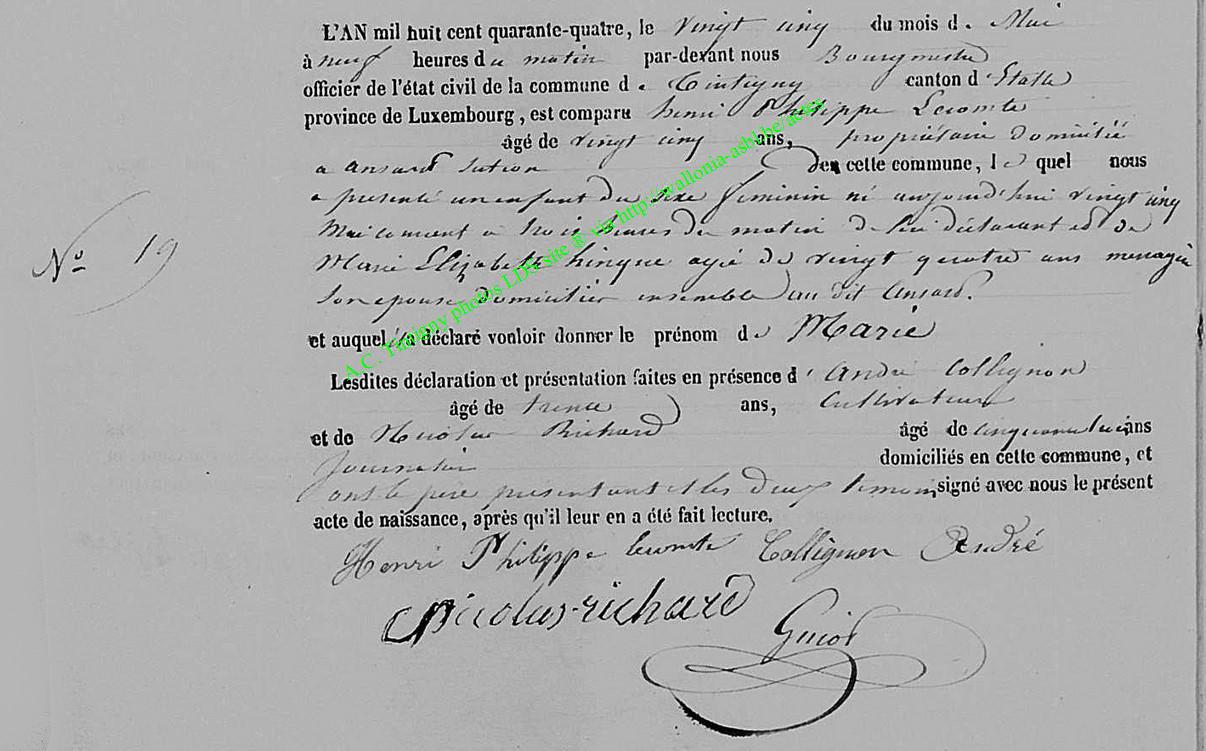 L'AN mil huit cent quarante-quatre, le vingt cinq du mois d. Mai
à neuf heures du matin par-devant nous Bourgmestre
officier de l'état civil de la commune de Tintigny canton d'Etalle
province de Luxembourg, est comparu henri Philippe Lecomte
âgé de vingt cinq ans, propriétaire domicilié
a ansart de cette commune, lequel nous
a presenté un enfant du sexe feminin né aujourd'hui vingt cinq
Mai courant a trois heures du matin de lui déclarant et de
Marie Elizabette hinque agée de vingt quatre ans menagère
son epouse domicilier ensemble au dit ansard.
et auquel il a déclaré vouloir donner le prénom de Marie
Lesdites déclaration et présentation faites en présence d'andré Collignon
âgé de trente ans, Cultivateur
et de Nicolas Richard âgé de ans
Journalier domiciliés en cette commune, et
ont le père présentant et les deux temoins signé avec nous le présent
acte de naissance, après qu'il leur en a été fait lecture.
Henri Philippe lecomte Collignon André
Nicolas richard
Guiot
No 19
A.C. Tintigny photos LDS site ® via http://wallonia-asbl.be/actes